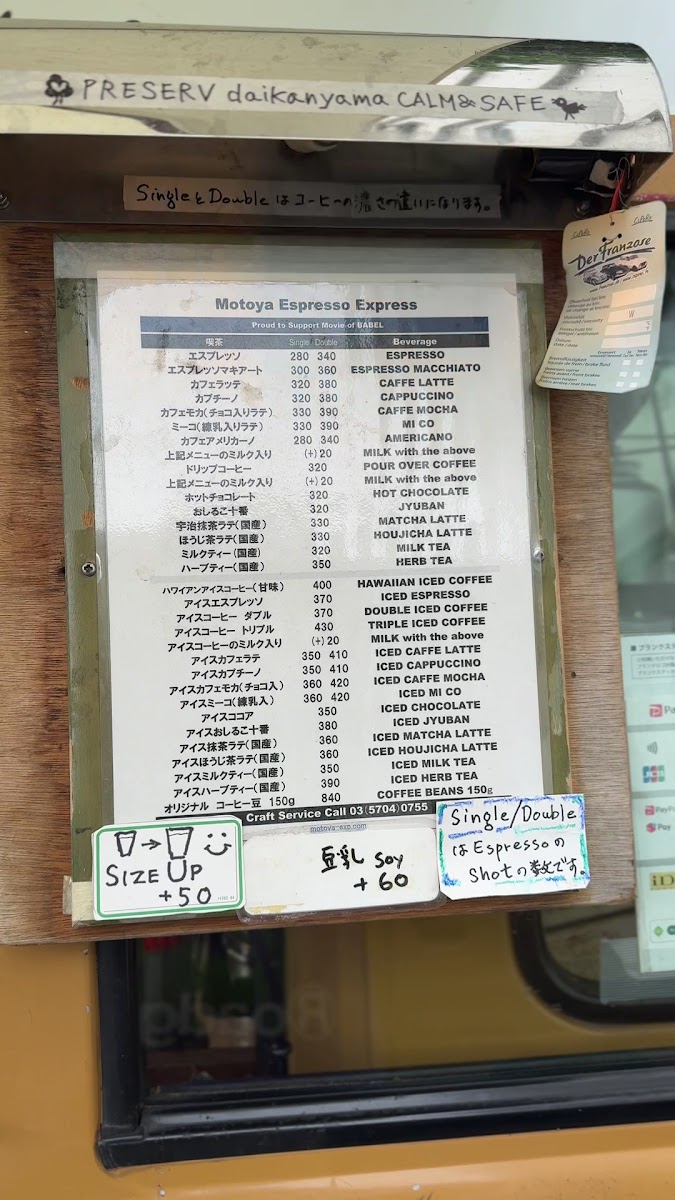 PRESERV daikanyama CALM&SAFE
SingleとDoubleはコーヒーの濃さの違いになります。
CaféRe CaféRe
Der Franzose
Motoya Espresso Express
Proud to Support Movie of BABEL
喫茶 Single Double Beverage
エスプレッソ 280 340 ESPRESSO
エスプレッソマキアート 300 360 ESPRESSO MACCHIATO
カフェラッテ 320 380 CAFFE LATTE
カプチーノ 320 380 CAPPUCCINO
カフェモカ(チョコ入りラテ) 330 390 CAFFE MOCHA
ミーコ(練乳入りラテ) 330 390 MI CO
カフェアメリカーノ 280 340 AMERICANO
上記メニューのミルク入り (+)20 MILK with the above
ドリップコーヒー 320 POUR OVER COFFEE
上記メニューのミルク入り (+)20 MILK with the above
ホットチョコレート 320 HOT CHOCOLATE
おしるこ十番 320 JYUBAN
宇治抹茶ラテ(国産) 330 MATCHA LATTE
ほうじ茶ラテ(国産) 330 HOUJICHA LATTE
ミルクティー(国産) 320 MILK TEA
ハーブティー(国産) 350 HERB TEA
ハワイアンアイスコーヒー(甘味) 400 HAWAIIAN ICED COFFEE
アイスエスプレッソ 370 ICED ESPRESSO
アイスコーヒー ダブル 370 DOUBLE ICED COFFEE
アイスコーヒー トリプル 430 TRIPLE ICED COFFEE
アイスコーヒーのミルク入り (+)20 MILK with the above
アイスカフェラテ 350 410 ICED CAFFE LATTE
アイスカプチーノ 350 410 ICED CAPPUCCINO
アイスカフェモカ(チョコ入) 360 420 ICED CAFFE MOCHA
アイスミーコ(練乳入) 360 420 ICED MI CO
アイスココア 350 ICED CHOCOLATE
アイスおしるこ十番 380 ICED JYUBAN
アイス抹茶ラテ(国産) 360 ICED MATCHA LATTE
アイスほうじ茶ラテ(国産) 360 ICED HOUJICHA LATTE
アイスミルクティー(国産) 350 ICED MILK TEA
アイスハーブティー(国産) 390 ICED HERB TEA
オリジナル コーヒー豆 150g 840 COFFEE BEANS 150g
Craft Service Call 03(5704)0755
motoya-exp.com
SIZE UP
+50
豆乳 soy
+60
Single/Double
はEspressoの
Shotの数です。
JCB
PayPay
Pay
iD